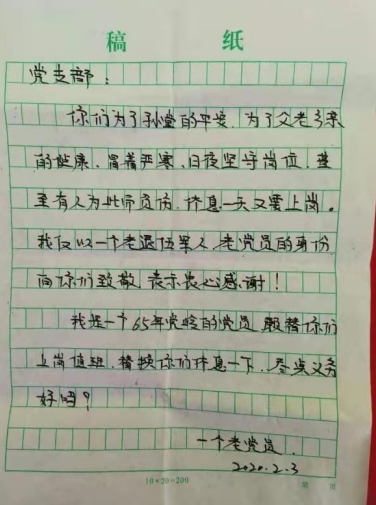 稿 纸
党支部：
你们为了孙堂的平安，为了父老乡亲
的健康，冒着严寒，日夜坚守岗位，甚
至有人为此而负伤，休息一天又要上岗。
我仅以一个老退伍军人，老党员的身份
向你们致敬，表示衷心感谢！
我是一个65年党龄的党员，愿替你们
上岗值班，替换你们休息一下，尽点义务
好吗？
一个老党员
2020.2.3
10×20=200
第 页